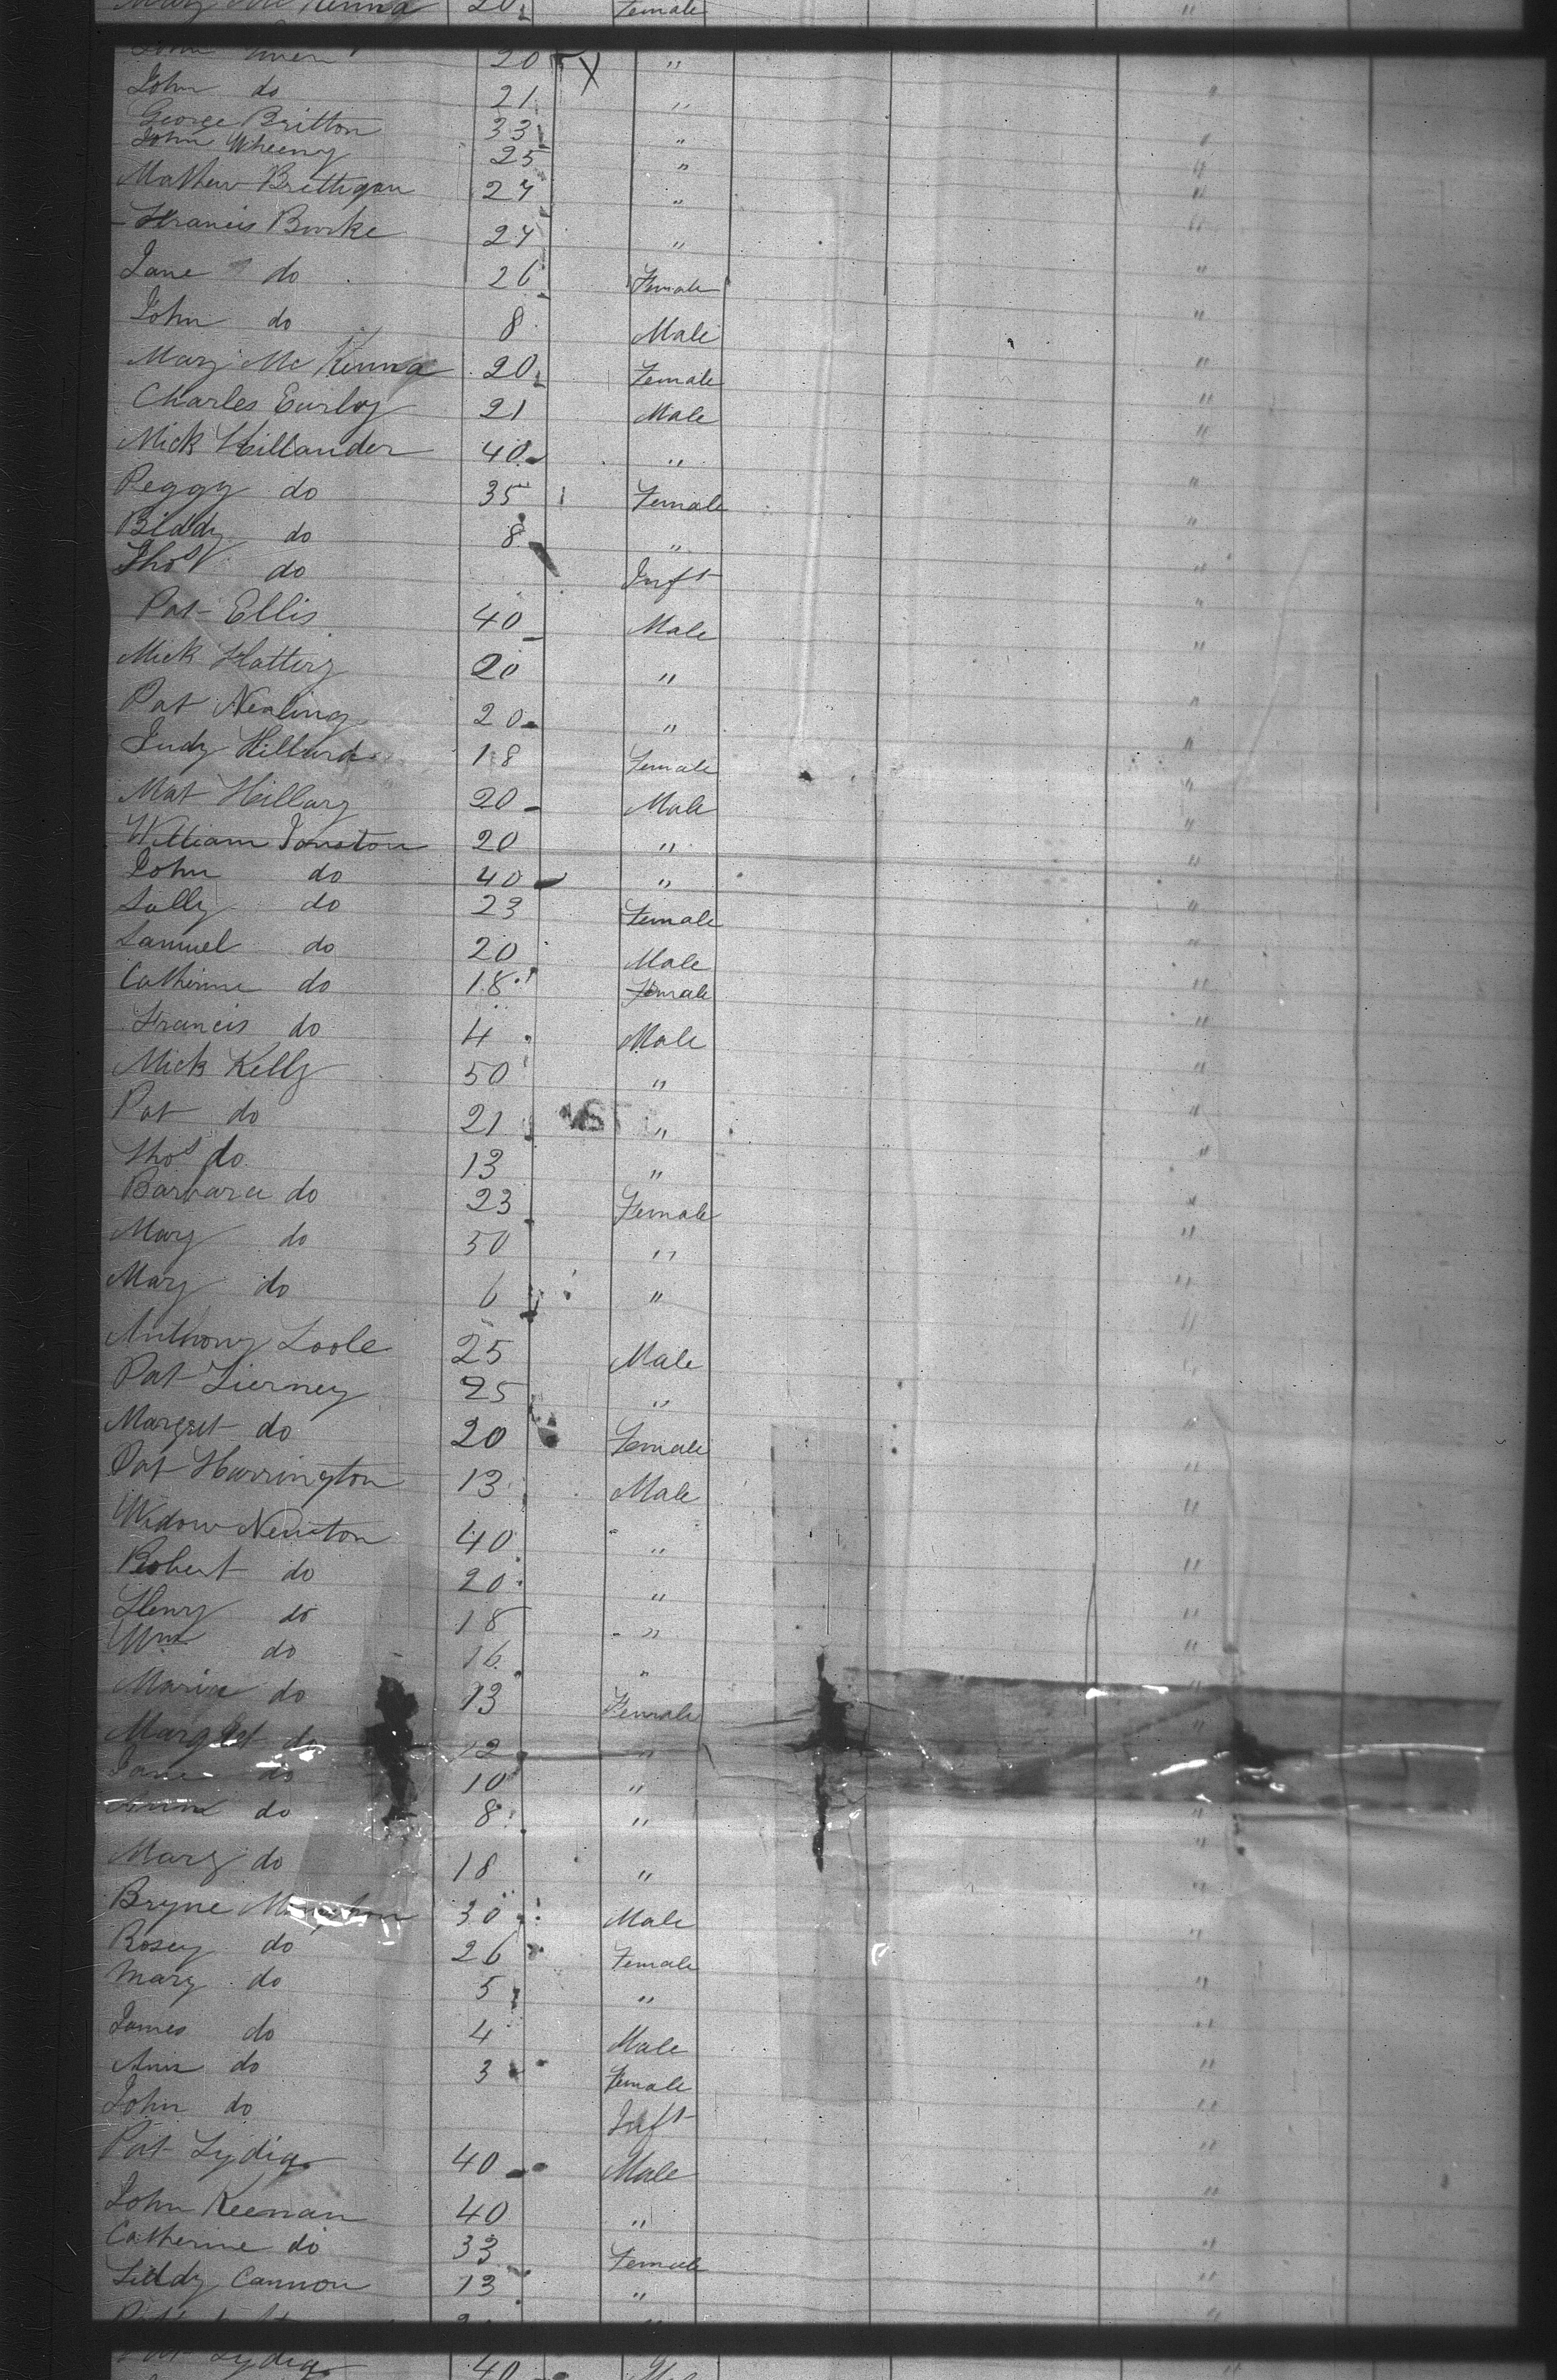 Mary Mc Kenna 20 Female "
John 20 X "
John do 21 " "
George Britton 33 " "
John Wheeny 25 " "
Mathew Brettigan 27 " "
Francis Bourke 27 " "
Jane do 26 Female "
John do 8 Male "
Mary Mc Kenna 20 Female "
Charles Eurley 21 Male "
Mick Hillander 40 " "
Peggy do 35 Female "
Biddy do 8 " "
Thos do Inft "
Pat Ellis 40 Male "
Mick Hattery 20 " "
Pat Nealing 20 " "
Judy Hillard 18 Female "
Mat Hillary 20 Male "
William Jonston 20 " "
John do 40 " "
Sally do 23 Female "
Samuel do 20 Male "
Catherine do 18 Female "
Francis do 4 Male "
Mick Kelly 50 " "
Pat do 21 " "
Thos do 13 " "
Barbara do 23 Female "
Mary do 50 " "
Mary do 6 " "
Anthony Loole 25 Male "
Pat Tierney 25 " "
Margret do 20 Female "
Pat Harrington 13 Male "
Widow Newton 40 " "
Robert do 20 " "
Henry do 18 " "
Wm do 16 " "
Maria do 13 Female "
Margret do 12 " "
Jane do 10 "
Ann do 8 " "
Mary do 18 " "
Bryne 30 Male "
Rosey do 26 Female "
Mary do 5 " "
James do 4 Male "
Ann do 3 Female "
John do Inft "
Pat Lydia 40 Male "
John Keenan 40 " "
Catherine do 33 Female "
Liddy Cannon 13 " "
Pat Lydia 40 "